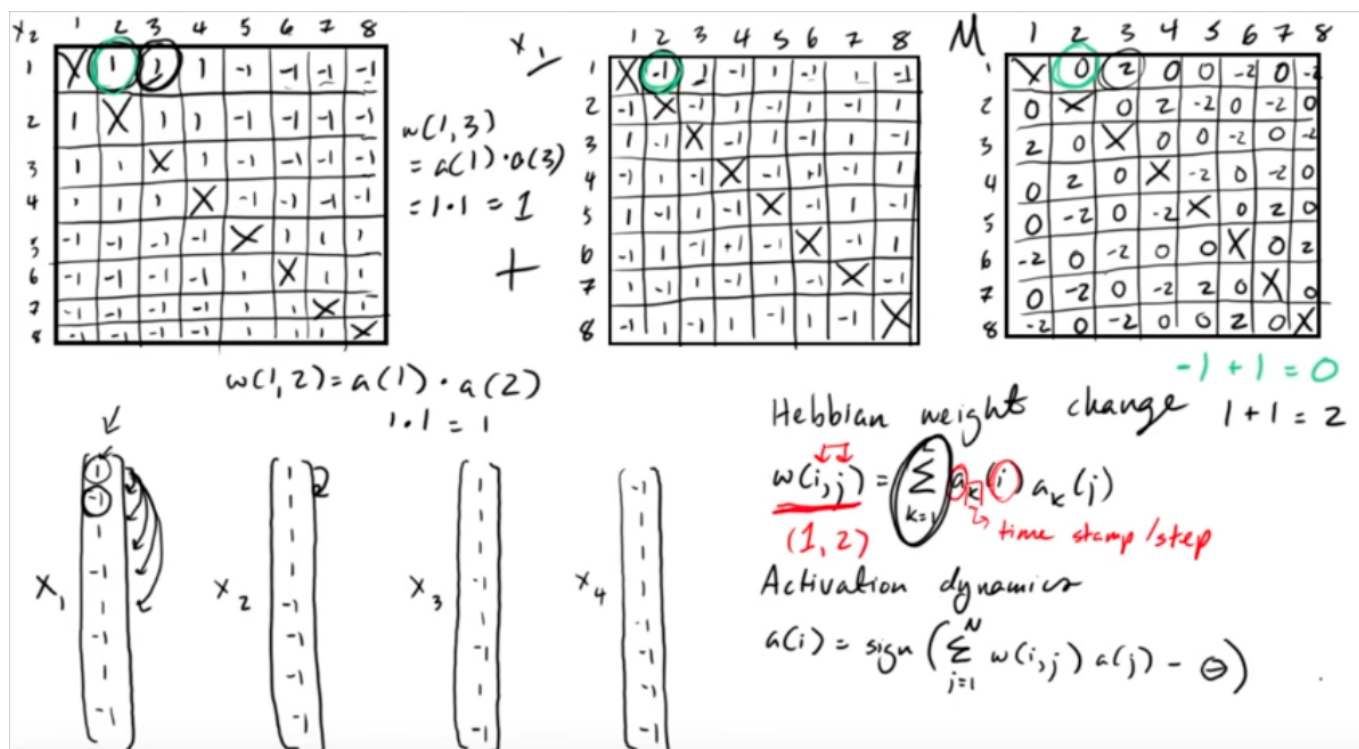 X2 1 2 3 4 5 6 7 8
1 X 1 1 1 -1 -1 -1 -1
2 1 X 1 1 -1 -1 -1 -1
3 1 1 X 1 -1 -1 -1 -1
4 1 1 1 X -1 -1 -1 -1
5 -1 -1 -1 -1 X 1 1 1
6 -1 -1 -1 -1 1 X 1 1
7 -1 -1 -1 -1 1 1 X 1
8 -1 -1 -1 -1 1 1 1 X
w(1,3)
= a(1)·a(3)
= 1·1 = 1
+
X1 1 2 3 4 5 6 7 8
1 X -1 1 -1 1 -1 1 -1
2 -1 X -1 1 -1 1 -1 1
3 1 -1 X -1 1 -1 1 -1
4 -1 1 -1 X -1 +1 -1 1
5 1 -1 1 -1 X -1 1 -1
6 -1 1 -1 +1 -1 X -1 1
7 1 -1 1 -1 1 -1 X -1
8 -1 1 -1 1 -1 1 -1 X
M 1 2 3 4 5 6 7 8
1 X 0 2 0 0 -2 0 -2
2 0 X 0 2 -2 0 -2 0
3 2 0 X 0 0 -2 0 -2
4 0 2 0 X -2 0 -2 0
5 0 -2 0 -2 X 0 2 0
6 -2 0 -2 0 0 X 0 2
7 0 -2 0 -2 2 0 X 0
8 -2 0 -2 0 0 2 0 X
w(1,2) = a(1) · a(2)
1·1 = 1
-1 + 1 = 0
1 + 1 = 2
X1
1
-1
1
-1
1
-1
1
-1
X2
1
1
1
1
-1
-1
-1
-1
X3
1
1
1
-1
1
-1
1
-1
X4
-1
1
1
1
-1
-1
-1
-1
Hebbian weight change
w(i,j) = Σ k=1 ak(i) ak(j)
(1,2)
time stamp/step
Activation dynamics
a(i) = sign (Σ j=1 N w(i,j) a(j) - Θ)